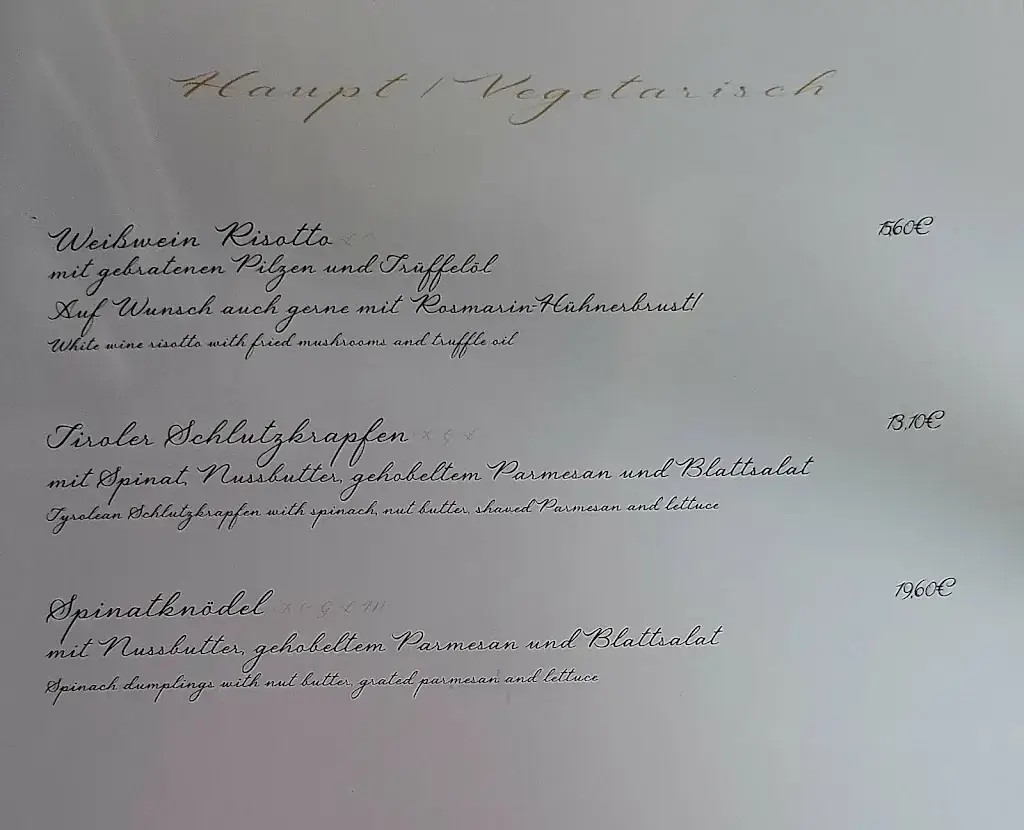 Haupt / Vegetarisch
Weißwein Risotto
15,60€
mit gebratenen Pilzen und Trüffelöl
Auf Wunsch auch gerne mit Rosmarin-Hühnerbrust!
White wine risotto with fried mushrooms and truffle oil
Tiroler Schlutzkrapfen
13,10€
mit Spinat, Nussbutter, gehobeltem Parmesan und Blattsalat
Tyrolean Schlutzkrapfen with spinach, nut butter, shaved Parmesan and lettuce
Spinatknödel
19,60€
mit Nussbutter, gehobeltem Parmesan und Blattsalat
Spinach dumplings with nut butter, grated parmesan and lettuce